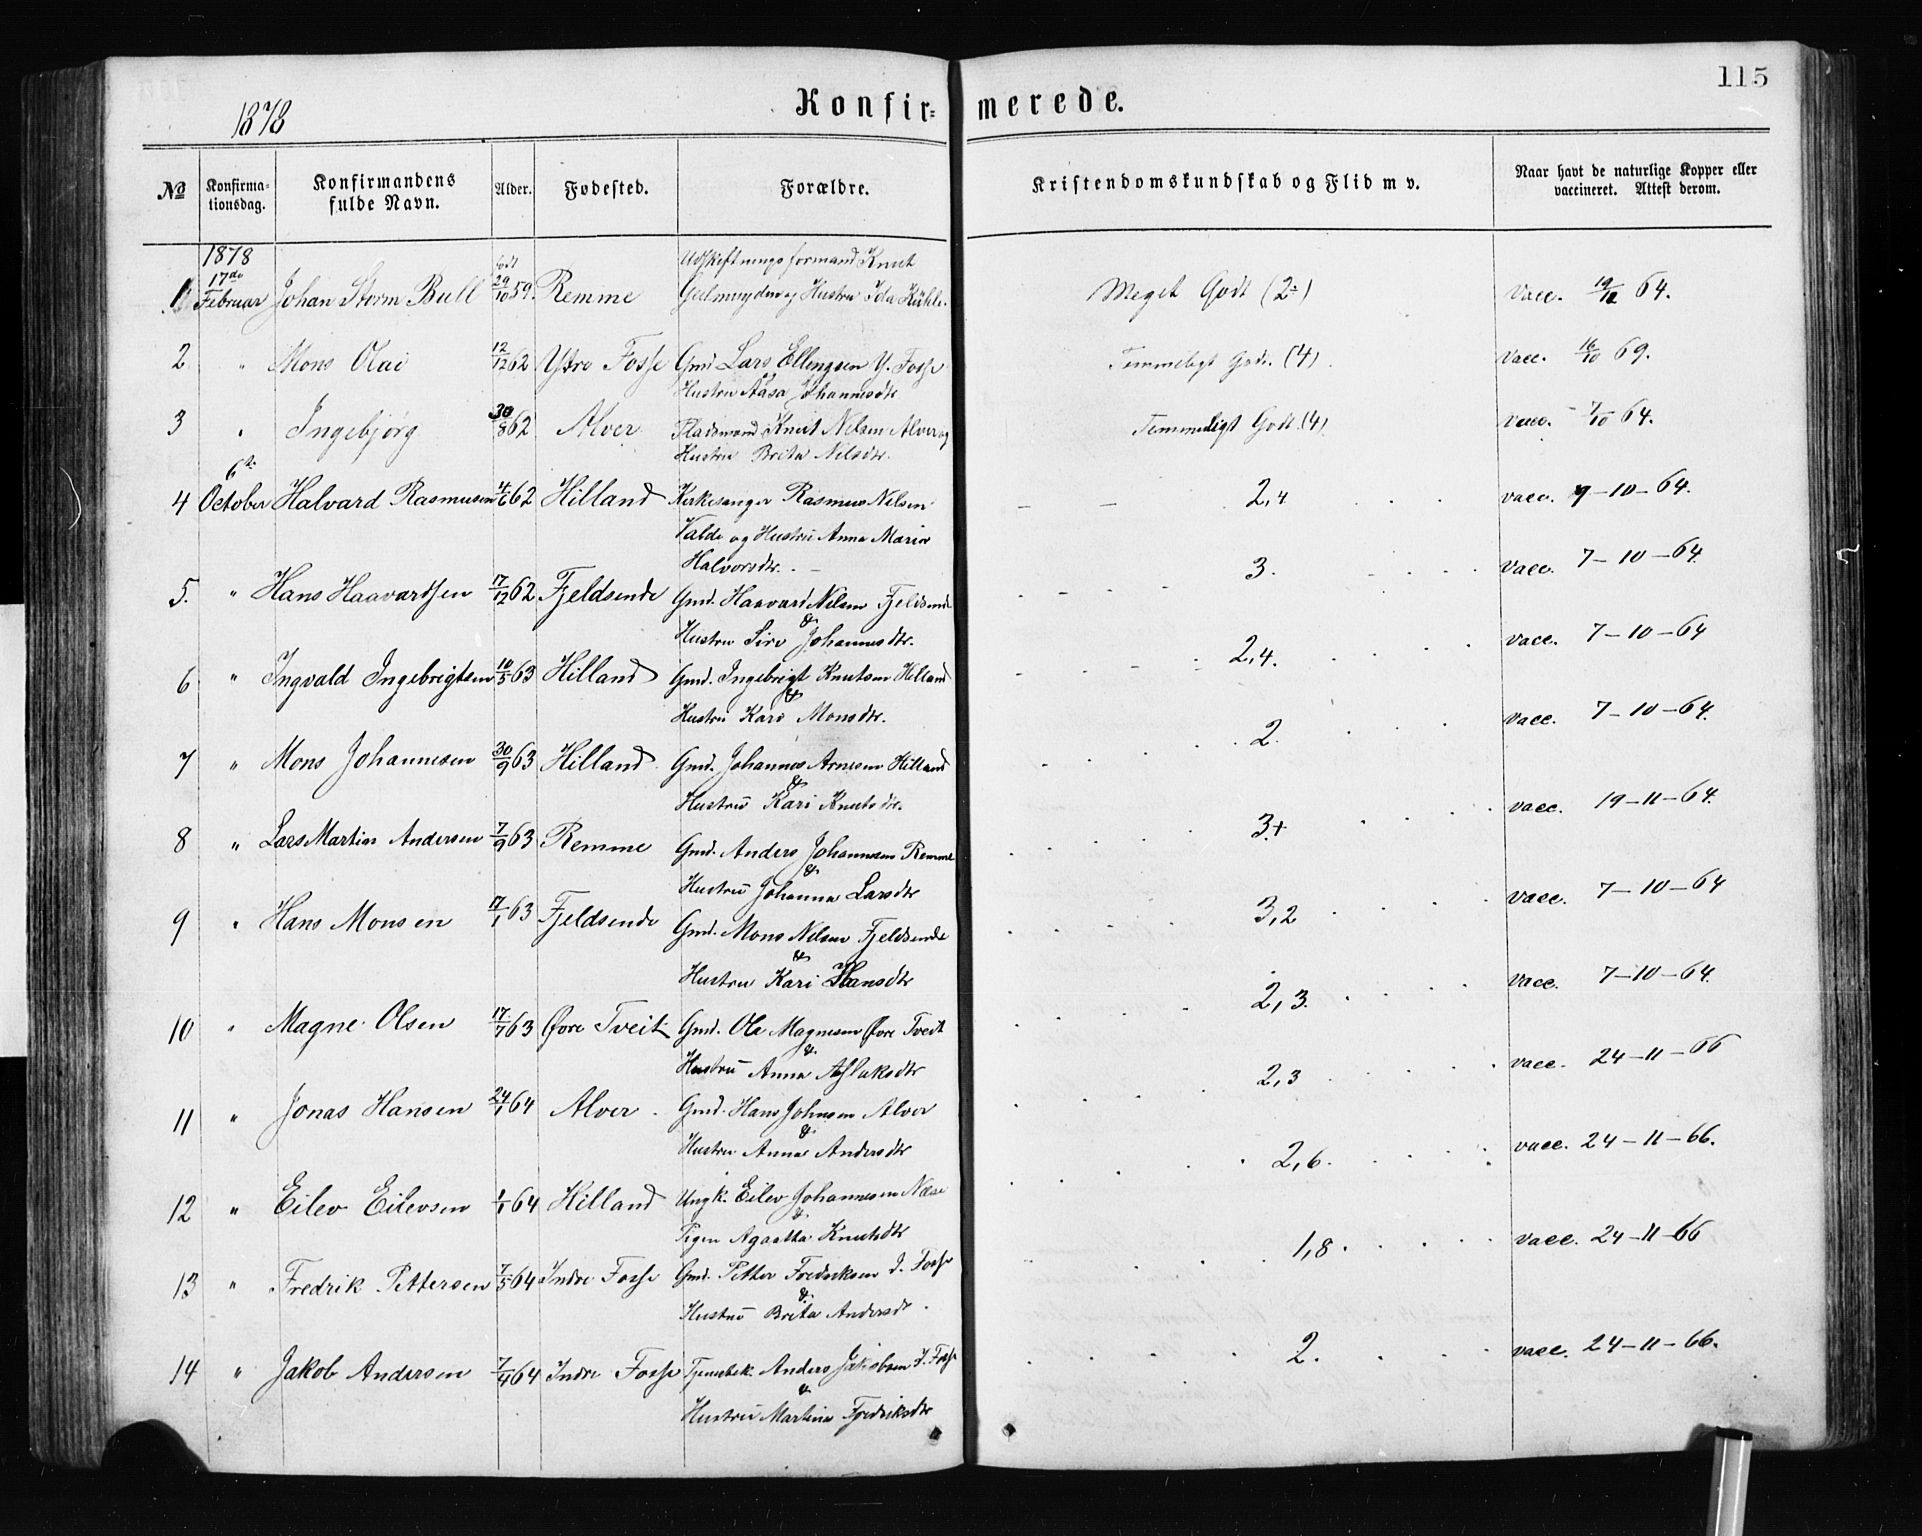 115
1878
Konfir= merede.
№ Konfirma-tionsdag. Konfirmandens fulde Navn. Alder. Fødested. Forældre. Kristendomskundskab og Flid m v. Naar havt de naturlige Kopper eller vaccineret. Attest derom.
1878 født Udskiftningsformand Knut
1 17de Februar Johan Storm Bull 29/10 59. Remme Geelmuyden og Hustru Ida Kühle. Meget Godt (2÷) Vacc. 19/12 64.
2 " Mons Olai 12/12 62 Ytre Fosse Gmd Lars Ellingsen Y. Fosse Temmeligt Godt. (4) Vacc. 16/10 69.
Hustru Aasa Johannesdtr
3 " Ingebjørg 30/8 62 Alver Pladsmand Knut Nelsen Alver og Temmeligt Godt (4) vacc. 7/10 64.
Hustru Brita Nilsdtr.
4 6te October Halvard Rasmusen 4/6 62 Hilland Kirkesanger Rasmus Nilsen 2,4 vacc. 7-10-64.
Valde og Hustru Anna Maria
Halvorsdtr. -
5. " Hans Haavardsen 17/12 62 Fjeldsende Gmd. Haavard Nilsen Fjeldsende 3. vacc. 7-10-64.
& Hustru Siri Johannesdtr.
6 " Ingvald Ingebrigtsen 10/5 63 Hilland Gmd. Ingebrigt Knutsen Hilland 2,4. vacc. 7-10-64
& Hustru Kari Monsdtr.
7 " Mons Johannesen 30/9 63 Hilland Gmd. Johannes Arnesen Hilland 2. vacc. 7-10-64.
& Hustru Kari Knutsdtr.
8 " Lars Martin Andersen 7/9 63 Remme Gmd. Anders Johannesen Remme 3+ vacc. 19-11-64.
& Hustru Johanna Larsdtr
9 " Hans Monsen 17/1 63 Fjeldsende Gmd. Mons Nilsen Fjeldsende 3,2 vacc. 7-10-64
& Hustru Kari Hansdtr
10 " Magne Olsen 17/7 63 Øvre Tveit Gmd. Ole Magnesen Øvre Tveit 2,3. vacc. 7-10-64.
& Hustru Anna Aslaksdtr
11 " Jonas Hansen 24/1 64 Alver. Gmd. Hans Johnsen Alver 2,3 vacc. 24-11-66
& Hustru Anna Andersdtr
12 " Eilev Eilevsen 1/1 64 Hilland Ungk. Eilev Johannesen Næse 2,6. vacc. 24-11-66.
& Pigen Agaatha Knutsdtr
13 " Fredrik Pettersen 7/5 64 Indre Fosse Gmd. Petter Fredriksen I. Fosse 1,8. vacc. 24-11-66
& Hustru Brita Andersdtr.
14 " Jakob Andersen 7/4 64 Indre Fosse Tjenestek. Anders Jakobsen I. Fosse 2. vacc. 24-11-66.
& Hustru Martina Fredriksdtr